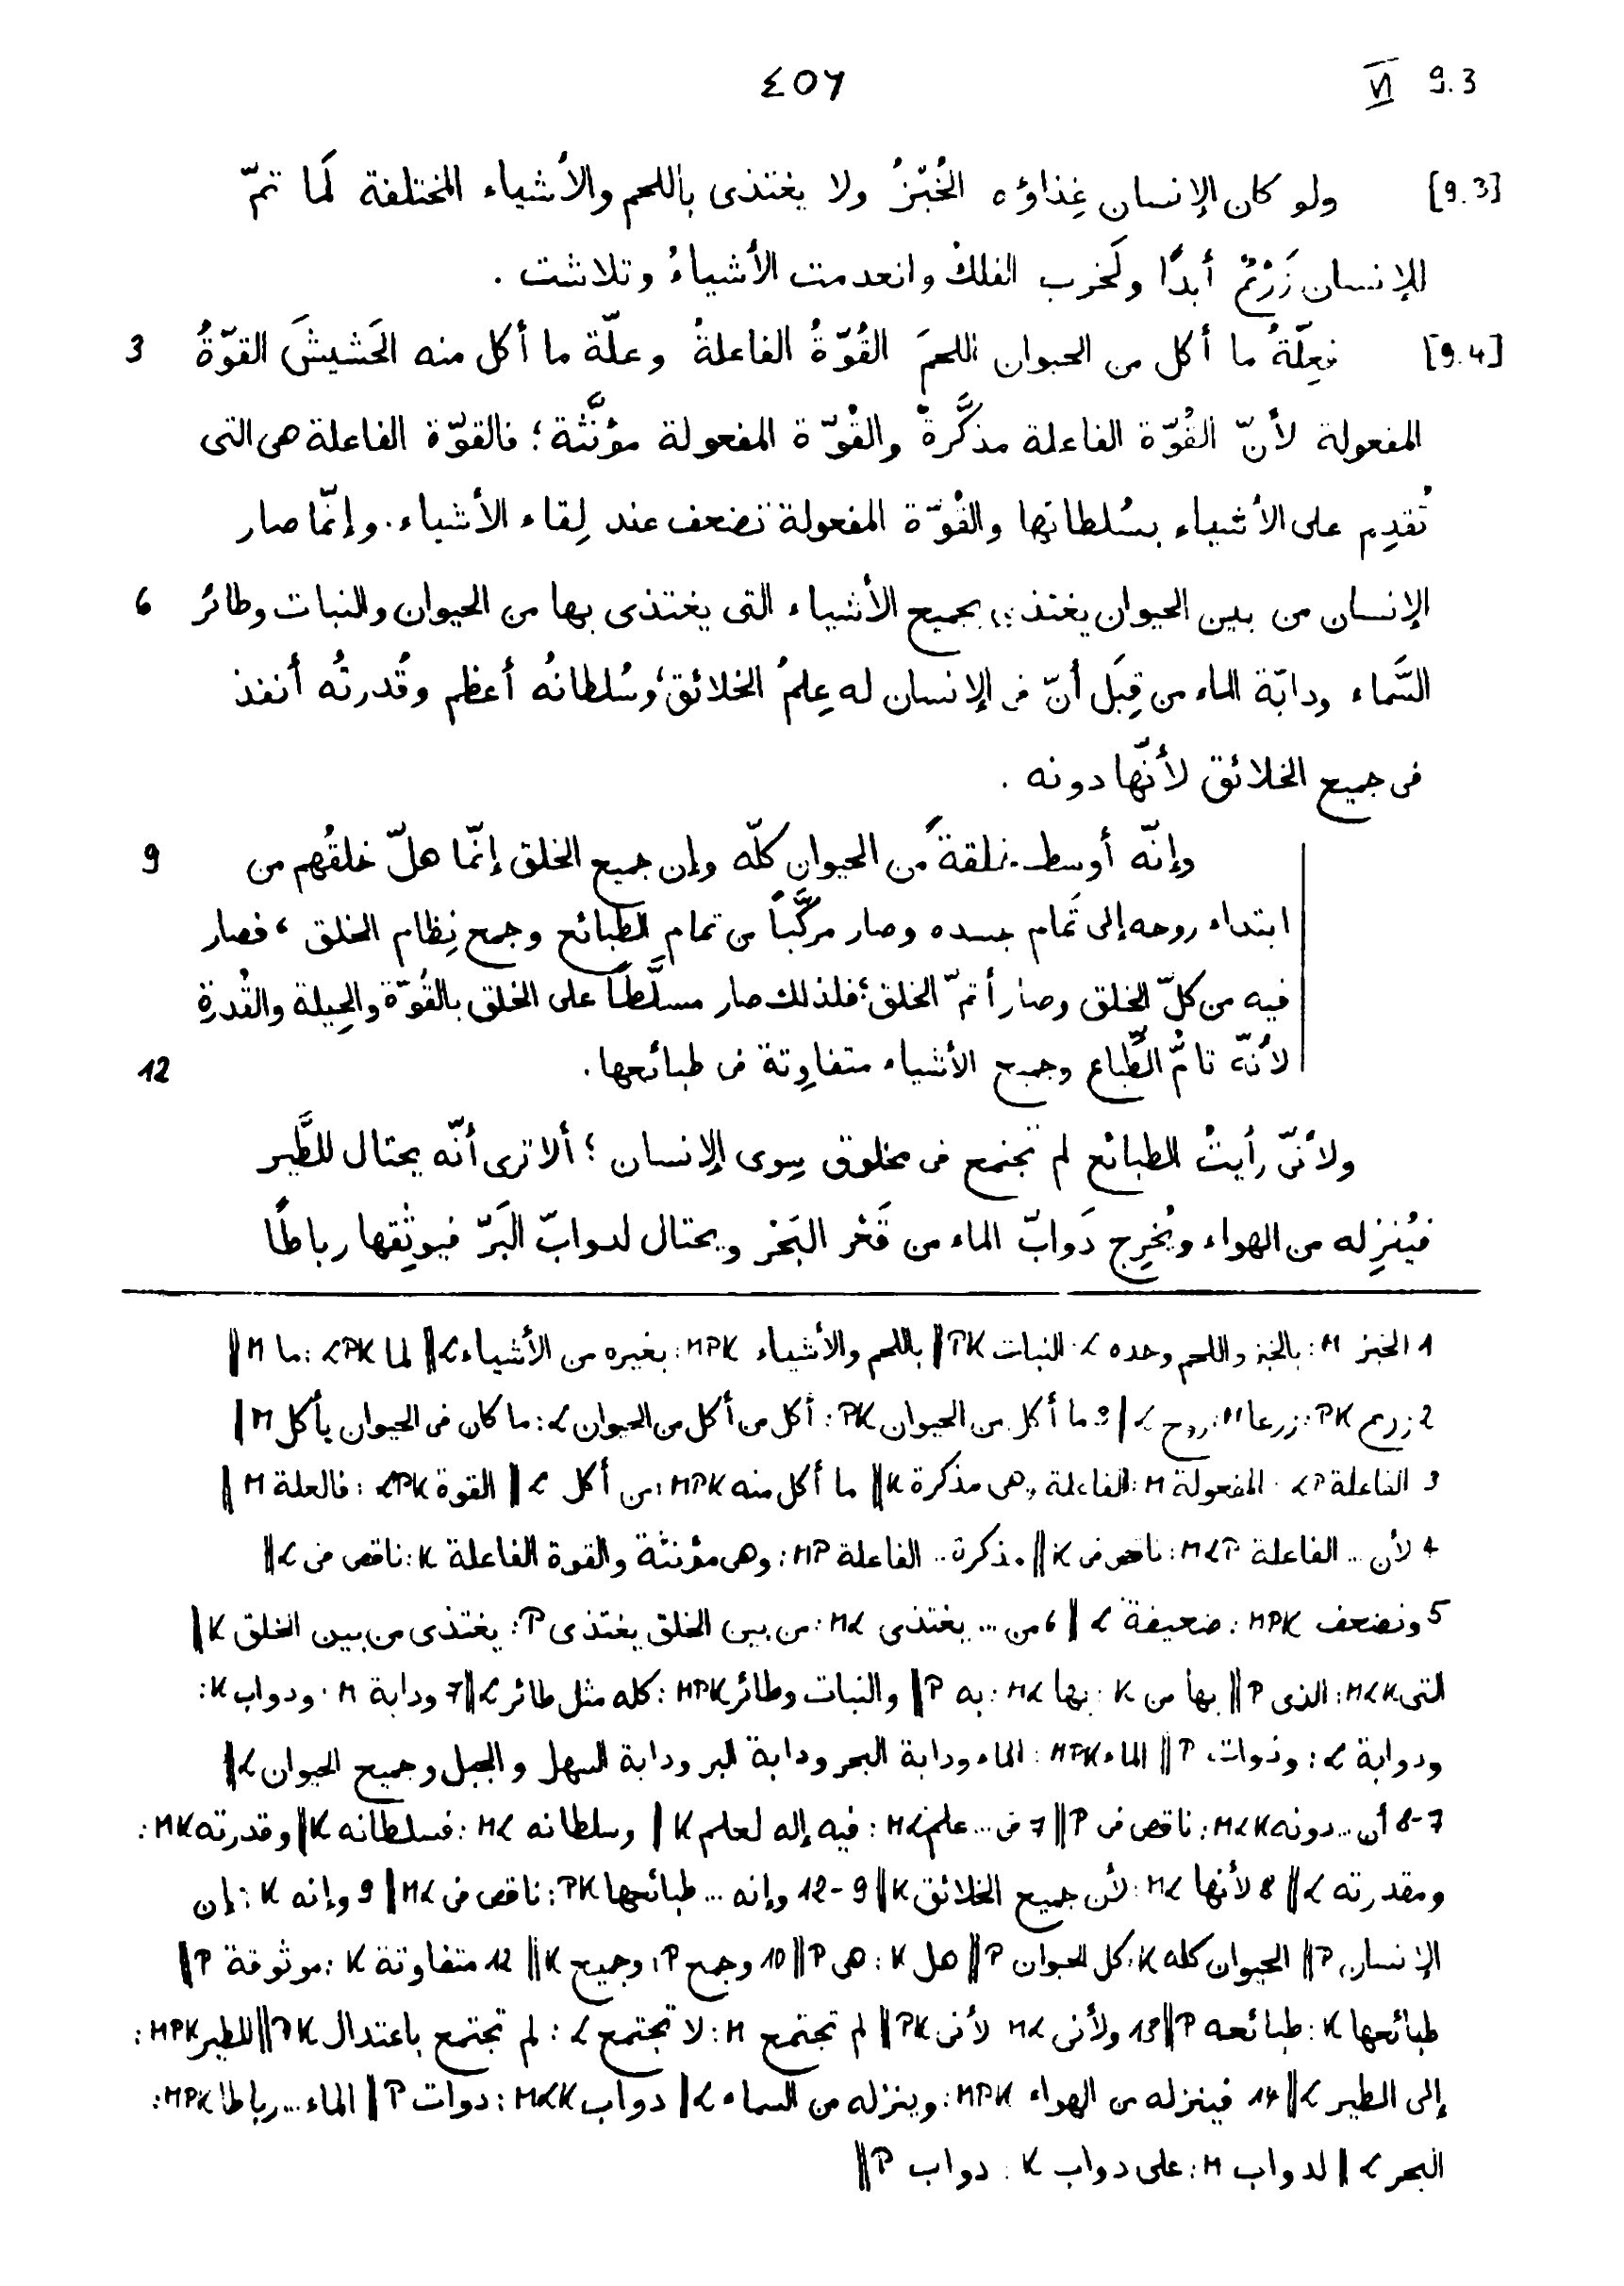 ٤٥٦ VI 9.3
[9.3] ولو كان الإنسان غِذاؤه الخُبْزُ ولا يغتذى باللحم والأشياء المختلفة لَما تمّ
للإنسان زَرْعٌ أبدًا ولَخرب الفلكُ وانعدمت الأشياءُ وتلاشت .
[9.4] فعِلّةُ ما أكل من الحيوان اللحمَ القُوّةُ الفاعلةُ وعلّة ما أكل منه الحَشيشَ القوّةُ 3
المفعولة لأنّ القُوّة الفاعلة مذكَّرةٌ والقُوّة المفعولة مؤنَّثة؛ فالقوّة الفاعلة هى التى
تُقدِم على الأشياء بسُلطانها والقُوّة المفعولة تضعف عند لِقاء الأشياء. وإنّما صار
الإنسان من بين الحيوان يغتذى بجميع الأشياء التى يغتذى بها من الحيوان والنبات وطائر 6
السَّماء ودابّة الماء من قِبَل أنّ فى الإنسان له عِلمُ الخلائق، وسُلطانُه أعظم وقُدرتُه أنفذ
فى جميع الخلائق لأنّها دونه .
وإنّه أوسط خلقةً من الحيوان كلّه وإن جميع الخلق إنّما هلّ خلقُهم من 9
ابتداء روحه إلى تَمام جسده وصار مركَّبًا من تمام الطبائع وجمع نِظام الخلق، فصار
فيه من كلّ الخلق وصار أتمّ الخلق؛ فلذلك صار مسلَّطًا على الخلق بالقُوّة والحِيلة والقُدرة
لأنّه تامُّ الطِّباع وجميع الأشياء متفاوِتة فى طبائعها. 12
ولأنّى رأيتُ الطبائع لم تجتمع فى مخلوق سِوى الإنسان ؛ ألا ترى أنّه يحتال للطَّير
فيُنزِله من الهواء ويُخرِج دَوابّ الماء من قَعْر البَحْر ويحتال لدوابّ البَرّ فيوثِقها رباطًا
1 الخبز M: بالخبز واللحم وحده L: النبات PK ‖ باللحم والأشياء MPK: بغيره من الأشياء L ‖ لما LPK: ما M ‖
2 زرع PK: زرعا M: روح L ‖ 3 ما أكل من الحيوان PK: أكل من أكل من الحيوان L: ما كان فى الحيوان يأكل M ‖
3 الفاعلة LP: المفعولة M: الفاعلة وهى مذكرة K ‖ ما أكل منه MPK: من أكل L ‖ القوة LPK: فالعلة M ‖
4 لأن ... الفاعلة MLP: ناقص فى K ‖ مذكرة ... الفاعلة MP: وهى مؤنثة والقوة الفاعلة K: ناقص فى L ‖
5 وتضعف MPK: ضعيفة L ‖ 6 من ... يغتذى ML: من بين الخلق يغتذى P: يغتذى من بين الخلق K ‖
التى MLK: الذى P ‖ بها من K: بها ML: به P ‖ والنبات وطائر MPK: كله مثل طائر L ‖ 7 ودابة M: ودواب K:
ودوابة L: وذوات P ‖ الماء MPK: الماء ودابة البحر ودابة البر ودابة السهل والجبل وجميع الحيوان L ‖
7-8 أن ... دونه MLK: ناقص فى P ‖ 7 فى ... علم ML: فيه إله لعلم K ‖ وسلطانه ML: فسلطانه K ‖ وقدرته MK:
ومقدرته L ‖ 8 لأنها ML: لأن جميع الخلائق K ‖ 9-12 وإنه ... طبائعها PK: ناقص فى ML ‖ 9 وإنه K: إن
الإنسان P ‖ الحيوان كله K: كل الحيوان P ‖ هل K: هى P ‖ 10 وجمع P: وجميع K ‖ 12 متفاوتة K: موثوقة P ‖
طبائعها K: طبائعه P ‖ 13 ولأنى ML لأنى PK ‖ لم تجتمع M: لا تجتمع L: لم تجتمع باعتدال PK ‖ للطير MPK:
إلى الطير L ‖ 14 فينزله من الهواء MPK: وينزله من السماء L ‖ دواب MLK: دوات P ‖ الماء ... رباطا MPK:
البحر L ‖ لدواب M: على دواب K: دواب P ‖